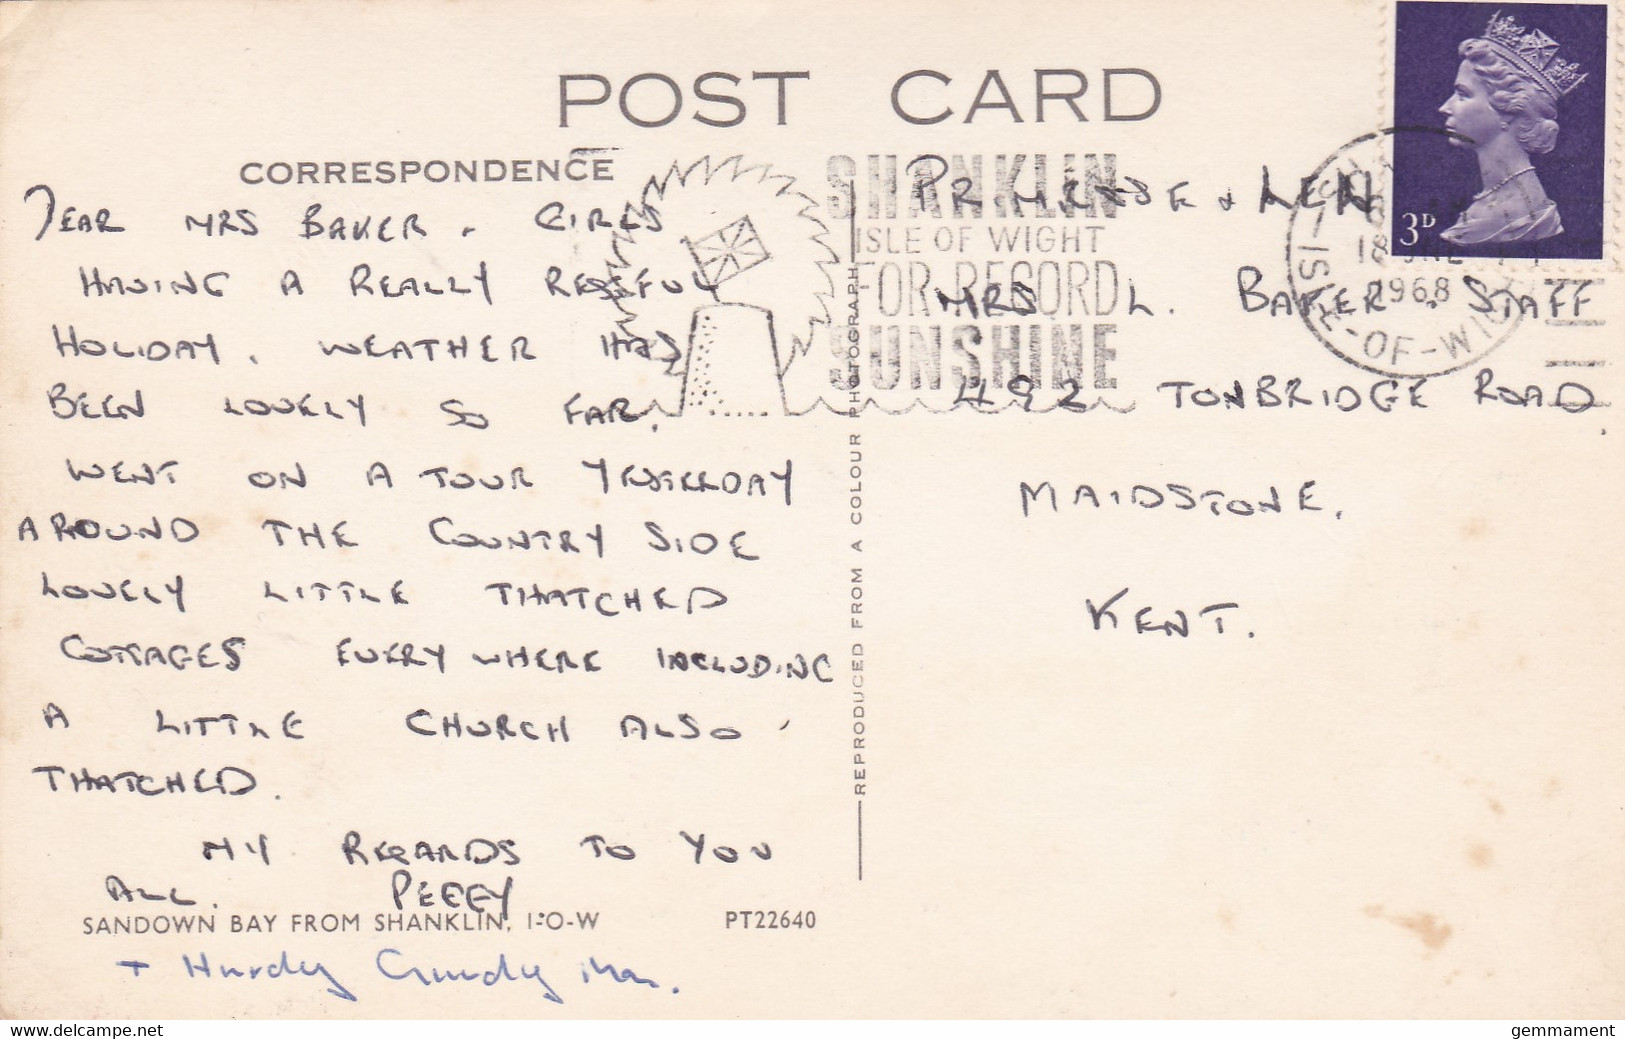 POST CARD
CORRESPONDENCE
SHANKLIN
ISLE OF WIGHT
FOR RECORD
SUNSHINE
3D
18 JNE
1968
ISLE-OF-WIGHT
DEAR MRS BAKER + GIRLS
HAVING A REALLY RESTFUL
HOLIDAY. WEATHER HAS
BEEN LOVELY SO FAR.
WENT ON A TOUR YESTERDAY
AROUND THE COUNTRY SIDE
LOVELY LITTLE THATCHED
COTTAGES EVERY WHERE INCLUDING
A LITTLE CHURCH ALSO
THATCHED.
MY REGARDS TO YOU
ALL. PEGGY
SANDOWN BAY FROM SHANKLIN, I-O-W PT22640
+ Hurdy Gurdy
REPRODUCED FROM A COLOUR PHOTOGRAPH
PRIMROSE + LEN
MRS L. BAKER. STAFF
492 TONBRIDGE ROAD
MAIDSTONE,
KENT.
www.delcampe.net
gemmament